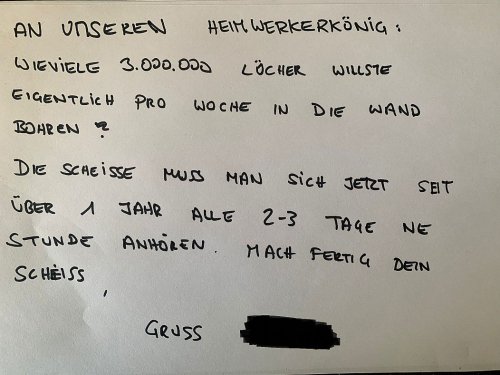 AN UNSEREN HEIMWERKERKÖNIG:
WIEVIELE 3.000.000 LÖCHER WILLSTE
EIGENTLICH PRO WOCHE IN DIE WAND
BOHREN?
DIE SCHEISSE MUSS MAN SICH JETZT SEIT
ÜBER 1 JAHR ALLE 2-3 TAGE NE
STUNDE ANHÖREN. MACH FERTIG DEIN
SCHEISS,
GRUSS